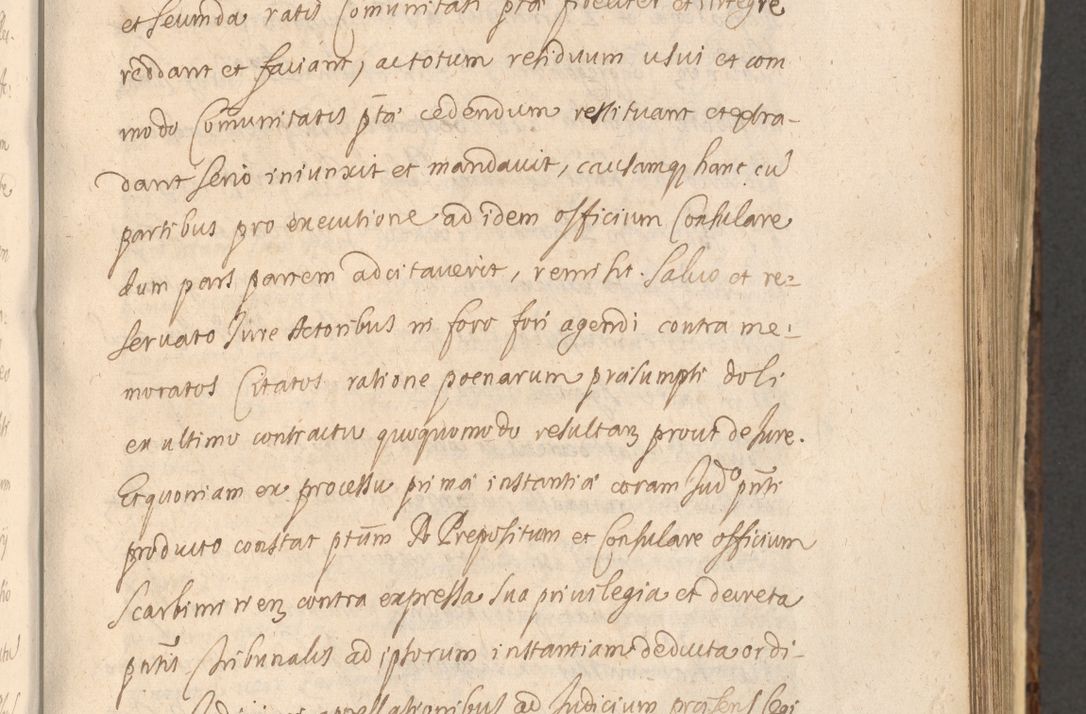 et secunda ratis Comunitati pta fideliter et integre
reddant et faciant, ac totum residuum usui et com
modo Comunitatis ptæ cedendum restituant et extra-
dant serio iniunxit et mandavit, causamq hanc cu
partibus pro executione ad idem officium Consulare
dum pars partem adcitaverit, remisit. Salvo et re=
servato Jure Actoribus in foro fori agendi contra me:
moratos Citatos ratione poenarum præsumpti doli
ex ultimo contractu quoquomodo resultan prout de Jure.
Et quoniam ex processu primæ instantiæ coram Judo pnti
producto constat ptum Rd Prepositum et Consulare officium
Scarbimiren contra expressa sua privilegia et decreta
pntis Tribunalis ad ipsorum instantiam deducta ordi-
appellationibus ad Judicium præsens